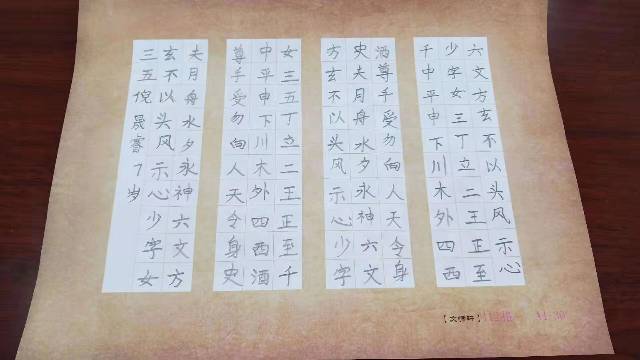 六文方玄不以头风示心
少字女三丁立二王正至
千中平申下川木外四西
酒尊千受勿向人天令身
史夫月舟水夕永神六文
方玄不以头风示心少字
女三五丁立二王正至千
中平申下川木外四西酒
尊手受勿向人天令身史
夫月舟水夕永神六文方
玄不以头风示心少字女
三五倪晟睿7岁